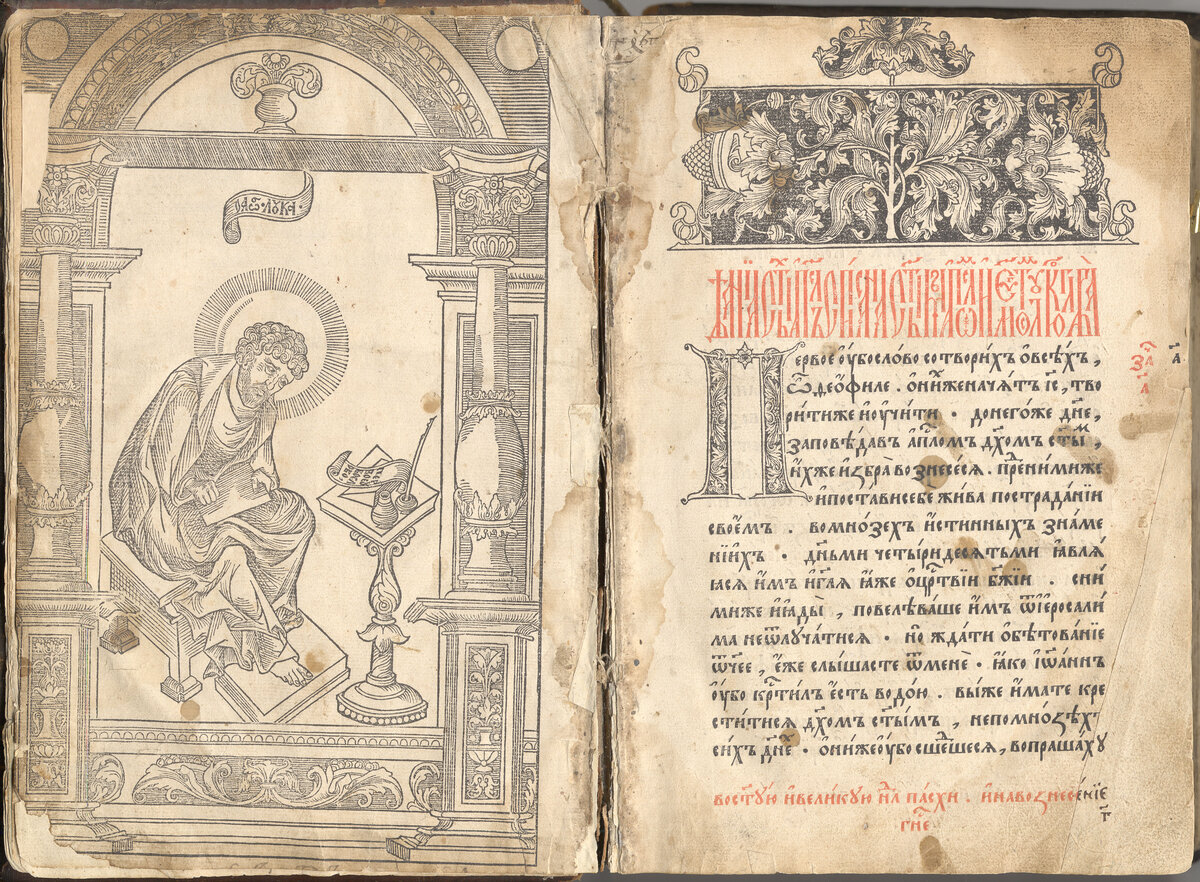 ЛꙊКА
Первое ᲂу҆бо слово сотвори́хъ ѡ҆ всѣ́хъ,
ѽ деѻ҆́филе . ѡ҆ ни́хже начѧ́тъ і҆с҃, тво
ри́ти же и҆ ᲂу҆чи́ти · до него́же дн҃е,
заповѣ́давъ а҆пⷭ҇ломъ дх҃омъ ст҃ыⷨ,
и҆́хже и҆збра̀ вознесе́сѧ . преⷣ ни́миже
и҆ поста́ви себѐ жи́ва по страда́нїи
свое́мъ . во мно́зехъ и҆́стинныхъ зна́ме
нїихъ · дн҃ьми четы́ридесѧтьми ꙗ҆влѧ́
ꙗсѧ и҆̀мъ и҆ гл҃ѧ ꙗ҆́же ѡ҆ црⷭ҇твїи бж҃їи . с ни́
миже и҆ ꙗ҆ды̀, повелѣ́ваше и҆̀мъ ѿ і҆еросали́
ма не ѿлꙋча́тисѧ · но жда́ти ѡ҆бѣтова́нїе
ѿч҃ее, є҆́же слы́шасте ѿ менѐ · ꙗ҆́ко і҆ѡа́ннъ
ᲂу҆́бо крⷭ҇ти́лъ є҆́сть водо́ю . вы́ же и҆́мате кре
сти́тисѧ дх҃омъ ст҃ы́мъ, не по мно́ѕѣхъ
си́хъ дн҃еⷯ · ѻ҆ни́же ᲂу҆̀бо сше́дшесѧ, вопраша́хꙋ
во ст҃ꙋ́ю и҆ вели́кꙋю нⷣлю па́схи . и҆ на вознесе́нїе
гн҃е
за҃ а҃
г҃